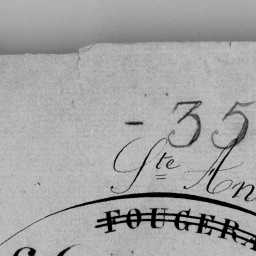 - 35
Ste An
FOUGERA